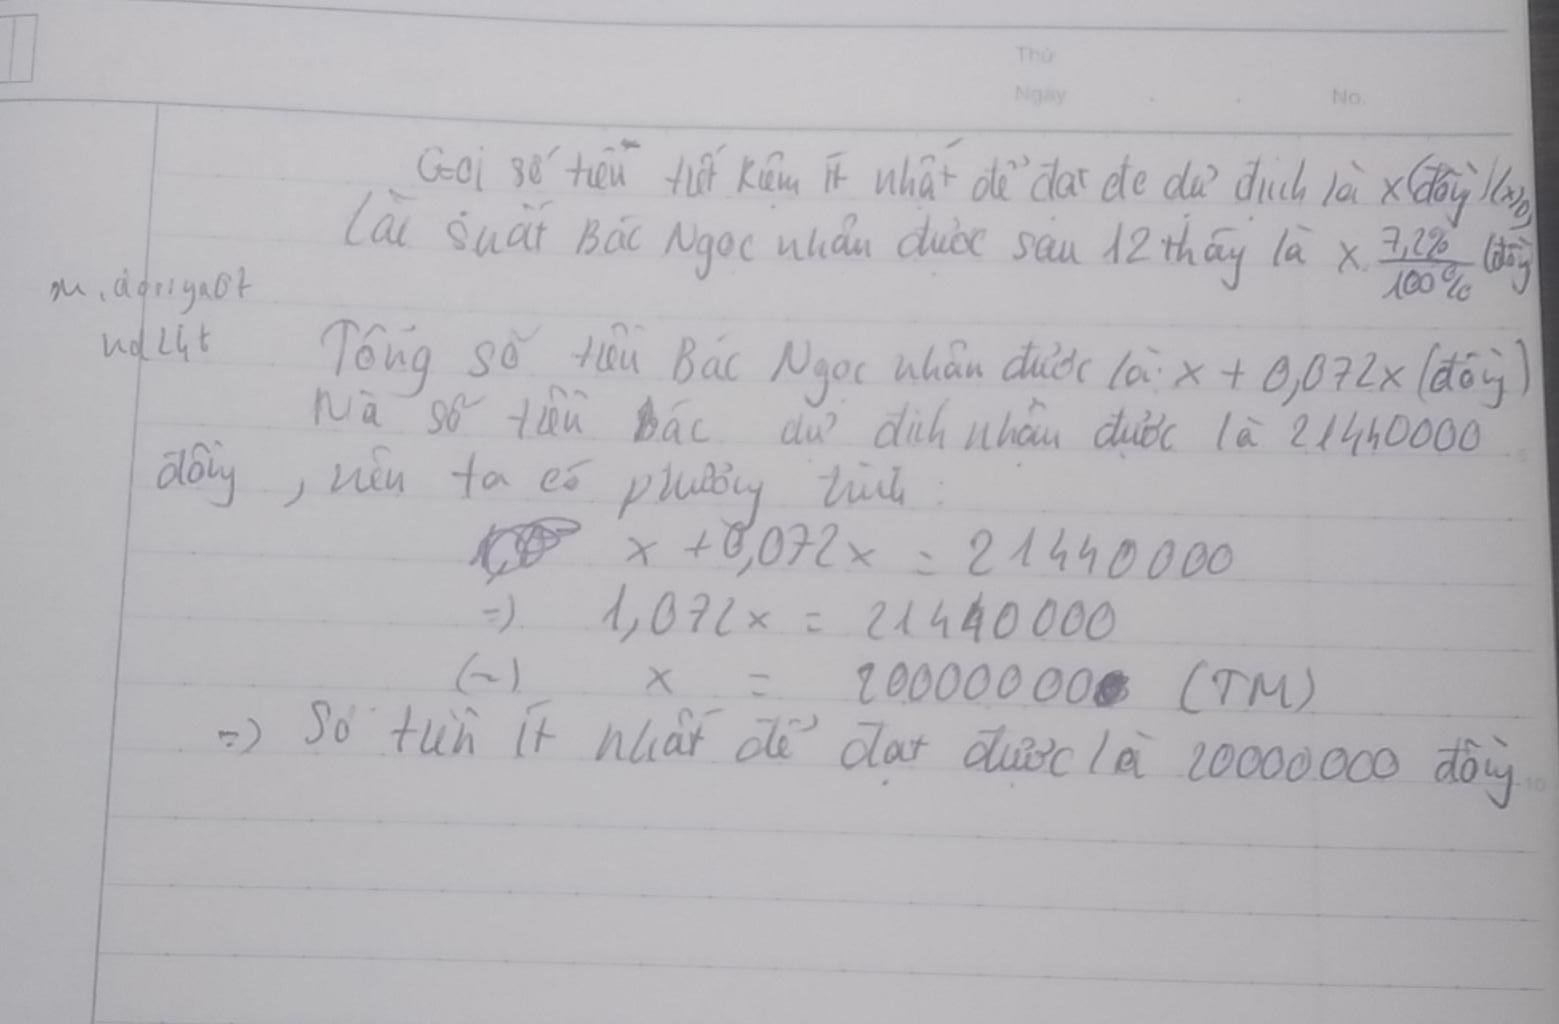 Thứ
Ngày No.
Gọi số tiền tiết kiệm ít nhất để đạt dự định là x (đồng) (x>0)
Lãi suất Bác Ngọc nhận được sau 12 tháng là x. 7,2%/100% (đồng
Tổng số tiền Bác Ngọc nhận được là: x + 0,072x (đồng)
Mà số tiền Bác dự định nhận được là 21440000
đồng, nên ta có phương trình:
x + 0,072x = 21440000
=) 1,072x = 21440000
(~) x = 20000000 (TM)
=) Số tiền ít nhất để đạt được là 20000000 đồng